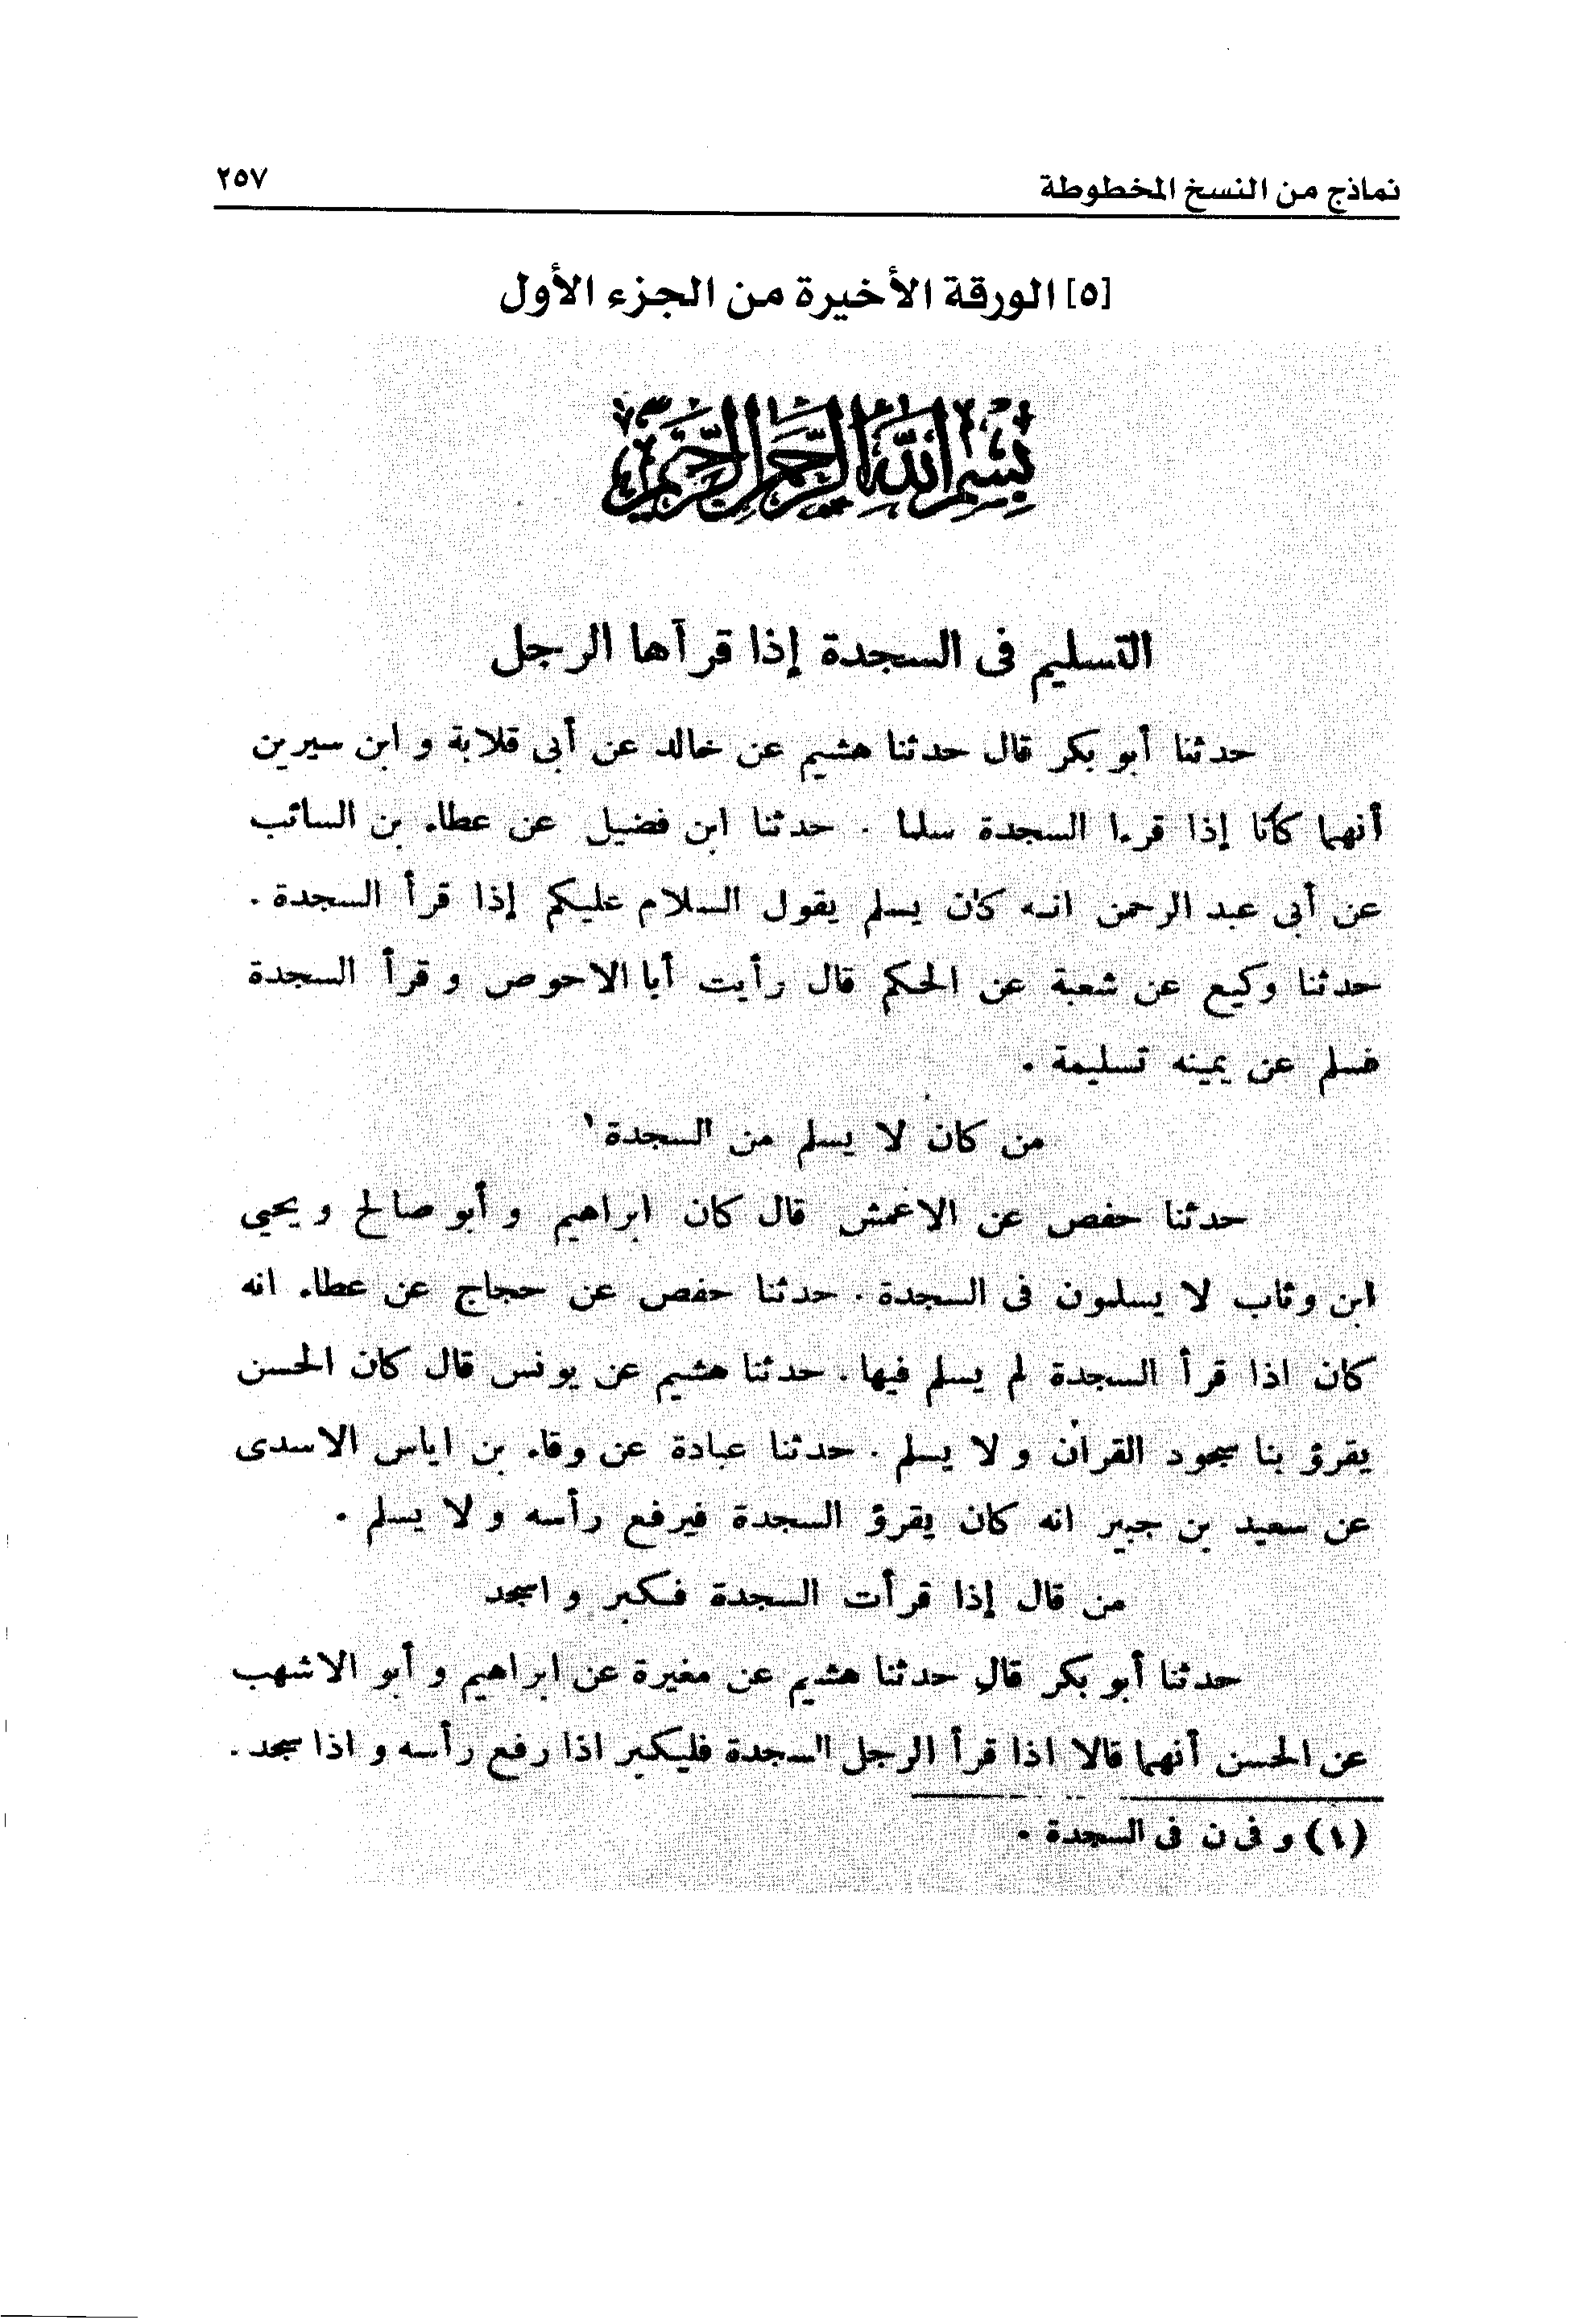 نماذج من النسخ المخطوطة ٢٥٧
[٥] الورقة الأخيرة من الجزء الأول
بِسْمِ اللهِ الرَّحْمنِ الرَّحِيمِ
التسليم فى السجدة إذا قرآها الرجل
حدثنا أبو بكر قال حدثنا هشيم عن خالد عن أبى قلابة و ابن سيرين
أنهما كانا إذا قرءا السجدة سلما . حدثنا ابن فضيل عن عطاء بن السائب
عن أبى عبد الرحمن انه كان يسلم يقول السلام عليكم إذا قرأ السجدة .
حدثنا وكيع عن شعبة عن الحكم قال رأيت أبا الاحوص و قرأ السجدة
فسلم عن يمينه تسليمة .
من كان لا يسلم من السجدة ١
حدثنا حفص عن الاعمش قال كان ابراهيم و أبو صالح و يحيى
ابن وثاب لا يسلمون فى السجدة . حدثنا حفص عن حجاج عن عطاء انه
كان اذا قرأ السجدة لم يسلم فيها . حدثنا هشيم عن يونس قال كان الحسن
يقرؤ بنا سجود القران و لا يسلم . حدثنا عبادة عن وقاء بن اياس الاسدى
عن سعيد بن جبير انه كان يقرؤ السجدة فيرفع رأسه و لا يسلم .
من قال إذا قرأت السجدة فكبر و اسجد
حدثنا أبو بكر قال حدثنا هشيم عن مغيرة عن ابراهيم و أبو الاشهب
عن الحسن أنهما قالا اذا قرأ الرجل السجدة فليكبر اذا رفع رأسه و اذا سجد .
(١) و فى ن فى السجدة .